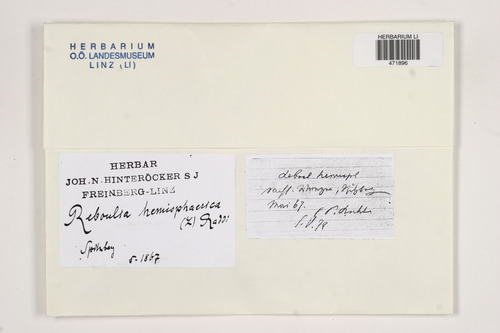 HERBARIUM
O.Ö. LANDESMUSEUM
LINZ (LI)
HERBARIUM LI
471896
HERBAR
JOH. N. HINTERÖCKER S J
FREINBERG-LINZ
Reboulia hemisphaerica
(L) Raddi
5. 1867
Reboul hemisph
Mai 67.